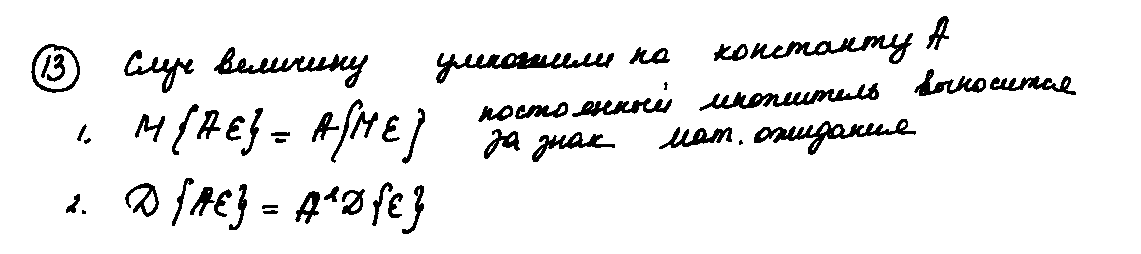 13 Случ величину умножили на константу А
1. М{Аε} = А{Мε} постоянный множитель выносится
за знак мат. ожидания
2. D{Аε} = А²D{ε}